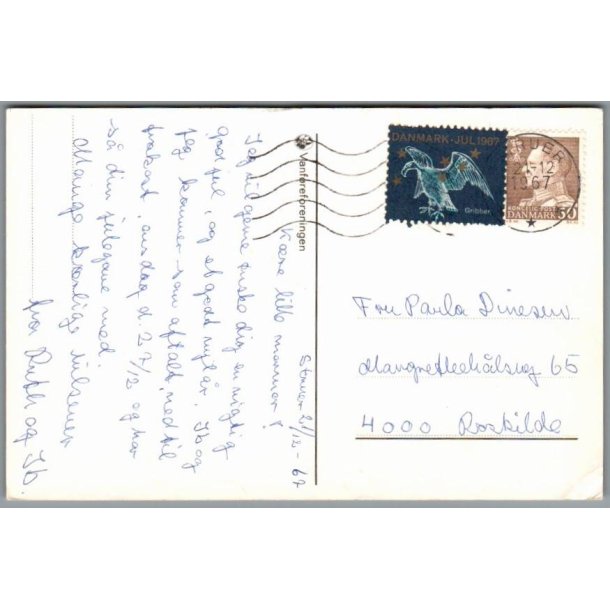 Struer 21/12-67
Kære lille mammer!
Jeg vil gerne ønske dig en rigtig
god jul, og et godt nytår. Ib og
jeg kommer som aftalt ned til
frokost onsdag d. 27/12 og har
så din julegave med.
Mange kærlige hilsener
fra Ruth og Ib.
Vanføreforeningen
DANMARK · JUL 1967
Gribben
DANMARK 30
1967
Fru Paula Dinesen
Margrethehåbsvej 65
4000 Roskilde